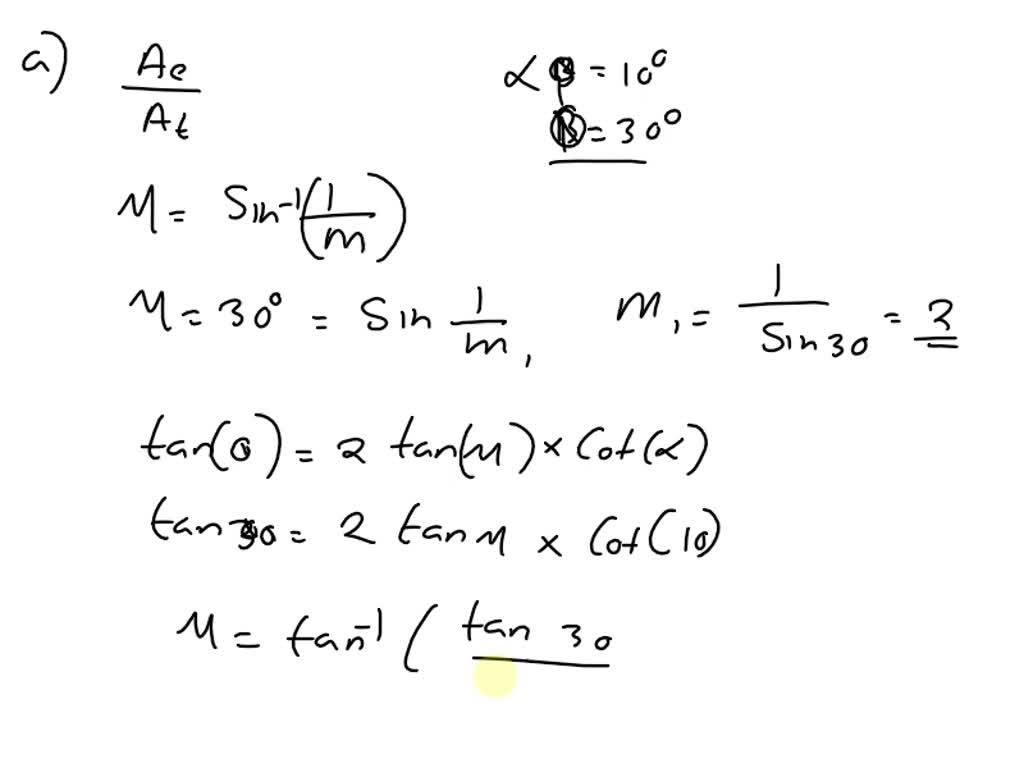 a) Ae/At α = 10°
= 30°
M = Sin⁻¹(1/m)
M = 30° = Sin 1/m, m, = 1/Sin30 = 2
tan(0) = 2 tan(M) × Cot(α)
tan30 = 2 tan M × Cot(10)
M = tan⁻¹ ( tan 30